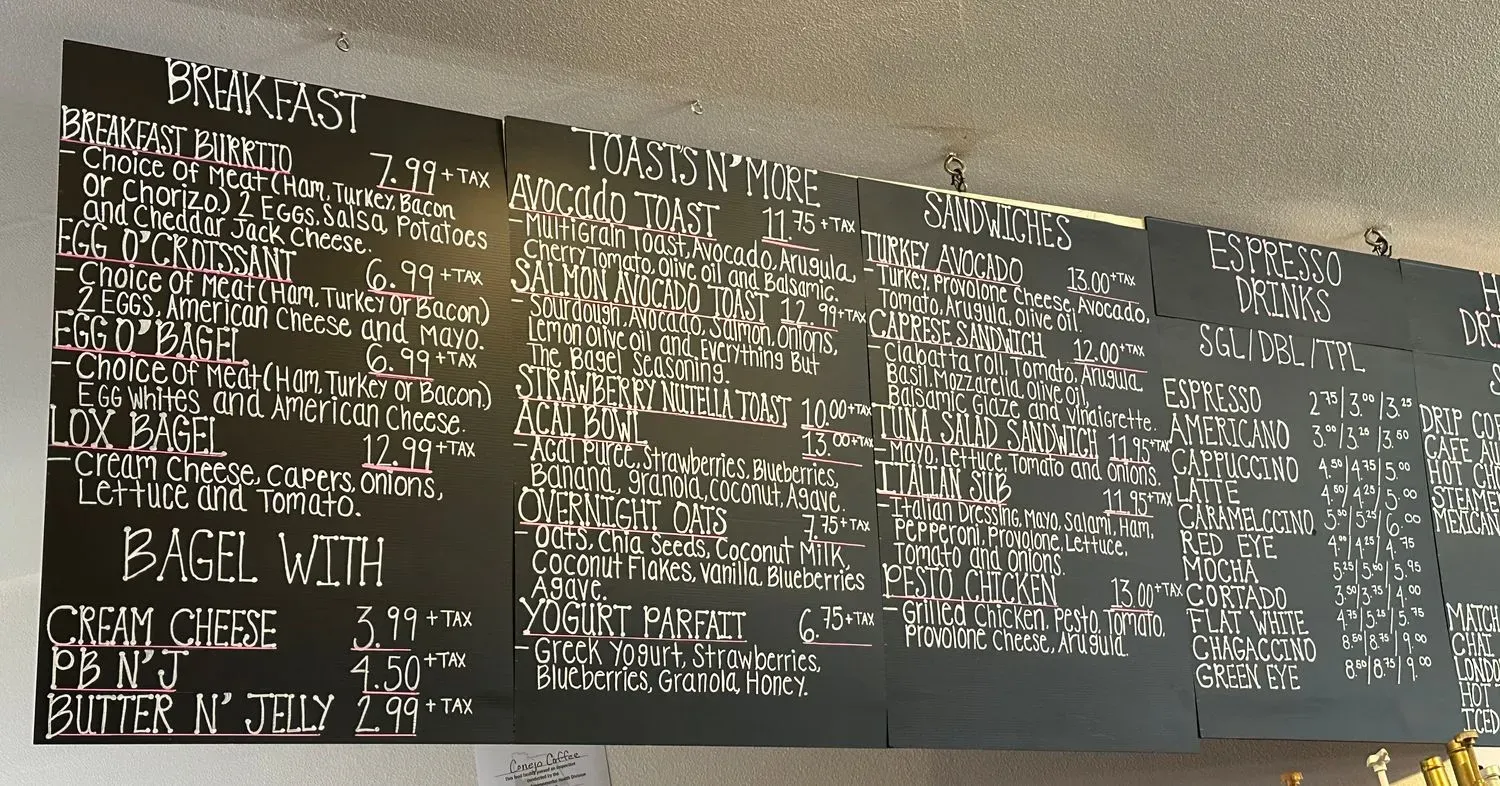 BREAKFAST
BREAKFAST BURRITO 7.99 + TAX
- Choice of Meat (Ham, Turkey, Bacon
or Chorizo.) 2 Eggs, Salsa, Potatoes
and Cheddar Jack Cheese.
EGG O'CROISSANT 6.99 + TAX
- Choice of Meat (Ham, Turkey or Bacon)
2 Eggs, American Cheese and Mayo.
EGG O'BAGEL 6.99 + TAX
- Choice of Meat (Ham, Turkey or Bacon.)
Egg Whites and American Cheese.
LOX BAGEL 12.99 + TAX
- Cream Cheese, Capers, Onions,
Lettuce and Tomato.
BAGEL WITH
CREAM CHEESE 3.99 + TAX
PB N' J 4.50 + TAX
BUTTER N' JELLY 2.99 + TAX
TOASTS N' MORE
AVOCADO TOAST 11.75 + TAX
- Multigrain Toast, Avocado, Arugula,
Cherry Tomato, Olive oil and Balsamic.
SALMON AVOCADO TOAST 12.99 + TAX
- Sourdough, Avocado, Salmon, Onions,
Lemon Olive oil and Everything But
The Bagel Seasoning.
STRAWBERRY NUTELLA TOAST 10.00 + TAX
ACAI BOWL 13.00 + TAX
- Acai Puree, Strawberries, Blueberries,
Banana, granola, coconut, Agave.
OVERNIGHT OATS 7.75 + TAX
- Oats, Chia Seeds, Coconut Milk,
Coconut Flakes, Vanilla, Blueberries
Agave.
YOGURT PARFAIT 6.75 + TAX
- Greek Yogurt, Strawberries,
Blueberries, Granola, Honey.
SANDWICHES
TURKEY AVOCADO 13.00 + TAX
- Turkey, Provolone Cheese, Avocado,
Tomato, Arugula, Olive oil.
CAPRESE SANDWICH 12.00 + TAX
- Ciabatta roll, Tomato, Arugula,
Basil, Mozzarella, Olive oil,
Balsamic Glaze and Vinaigrette.
TUNA SALAD SANDWICH 11.95 + TAX
- Mayo, Lettuce, Tomato and onions.
ITALIAN SUB 11.95 + TAX
- Italian Dressing, Mayo, Salami, Ham,
Pepperoni, Provolone, Lettuce,
Tomato and onions.
PESTO CHICKEN 13.00 + TAX
- Grilled Chicken, Pesto, Tomato,
Provolone Cheese, Arugula.
ESPRESSO
DRINKS
SGL/DBL/TPL
ESPRESSO 2.75/3.00/3.25
AMERICANO 3.00/3.25/3.50
CAPPUCCINO 4.50/4.75/5.00
LATTE 4.50/4.25/5.00
CARAMELCCINO 5.50/5.25/6.00
RED EYE 4.00/4.25/4.75
MOCHA 5.25/5.60/5.95
CORTADO 3.50/3.75/4.00
FLAT WHITE 4.75/5.25/5.75
CHAGACCINO 8.50/8.75/9.00
GREEN EYE 8.50/8.75/9.00
DRIP
CAFE
HOT
MEXICAN
CHAI
HOT
ICED
Conejo Coffee